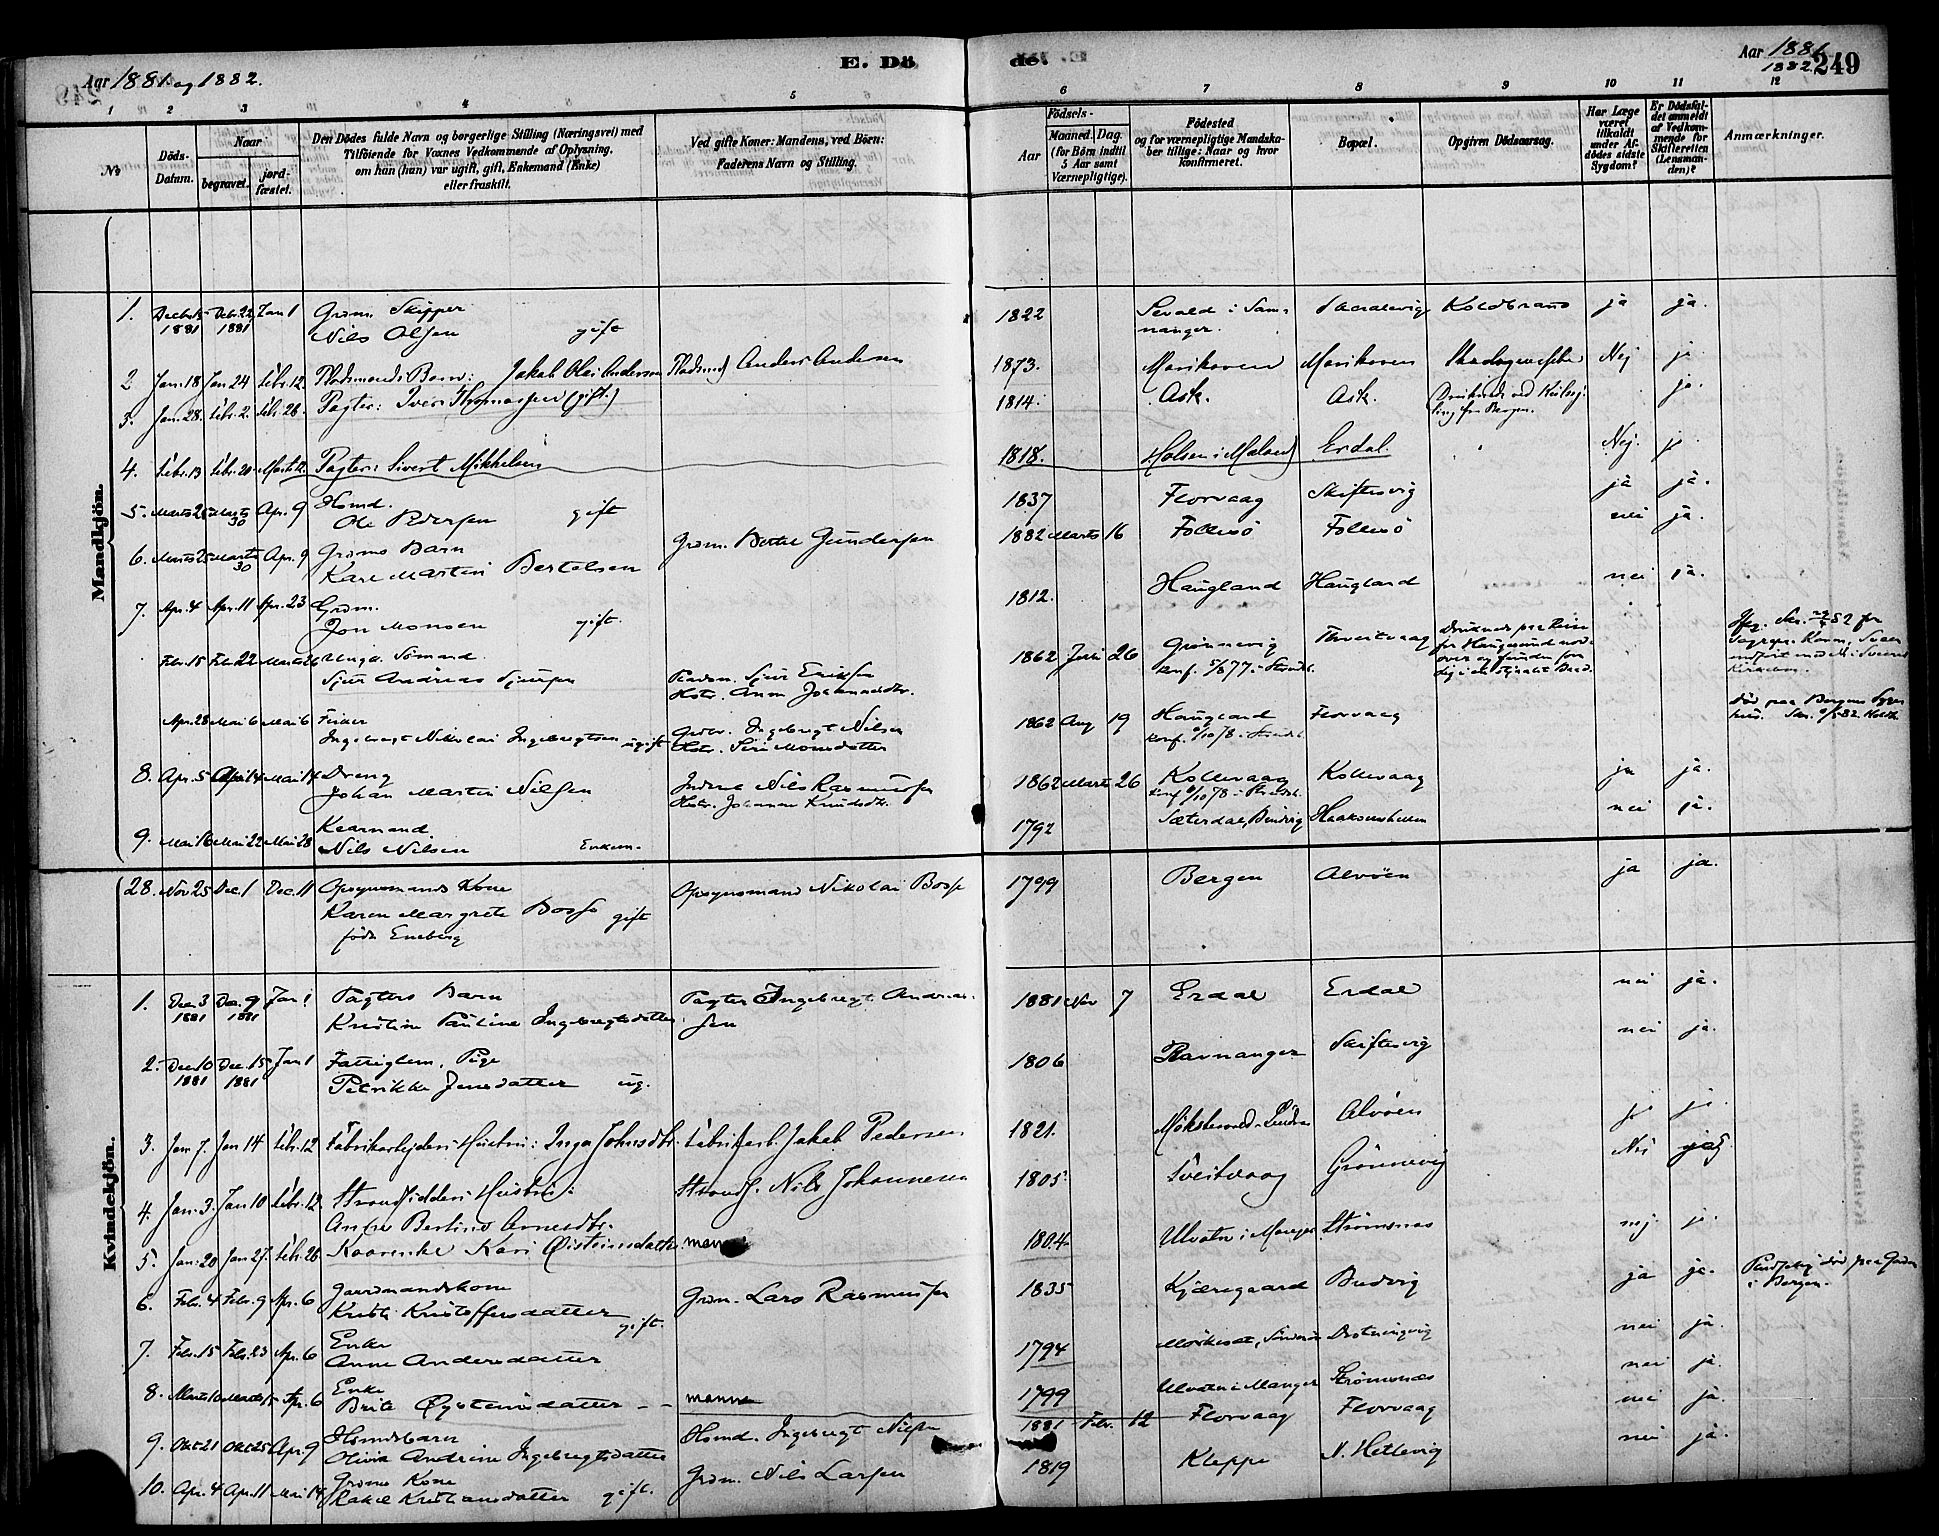 Aar 1881 og 1882.
E. Dö
de.
Aar 1881
1882 249
1 2 3 4 5 6 7 8 9 10 11 12
No
Döds-
Datum.
Naar
begravet.
jord-
fæstet.
Den Dödes fulde Navn og borgerlige Stilling (Næringsvei) med
Tilföiende for Voxnes Vedkommende af Oplysning,
om han (hun) var ugift, gift, Enkemand (Enke)
eller fraskilt.
Ved gifte Koner: Mandens, ved Börn:
Faderens Navn og Stilling.
Födsels-
Aar
Maaned. Dag.
(for Börn indtil
5 Aar samt
Værnepligtige).
Födested
og for værnepligtige Mandska-
ber tillige: Naar og hvor
konfirmeret.
Bopæl.
Opgiven Dödsaarsag.
Har Læge
været
tilkaldt
under Af-
dödes sidste
Sygdom?
Er Dödsfal-
det anmeldt
af Vedkom-
mende for
Skifteretten
(Lensman-
den)?
Anmærkninger.
Mandkjön.
1. Decbr 15 Debr. 22 Jan 1 Grdm. Skipper 1822 Sevald i Sam- Koldbrand ja ja.
1881 1881 Nils Olsen gift nanger.
2 Jan. 18 Jan 24 Febr. 12 Pladsmands Barn: Jakob Olai Andersen Pladsmd Anders Andersen 1873. Marikoven Marikoven Nej ja
3. Jan. 28. Febr. 2. Febr. 26. Pagter: Iver Thomassen (gift.) 1814. Ask. Ask. Druknede ved Kulsej- ja.
ling fra Bergen.
4. Febr. 13 Febr. 20 Marts 12. Pagter: Sivert Mikkelsen 1818. Holsen i Maland Erdal. Nej. ja
5. Marts 25 Marts 30 Apr. 9 Hsmd. 1837 Florvaag Skiftesvig ja ja.
Ole Pedersen gift
6. Marts 25 Marts 30 Apr. 9 Grdms Barn Grdm. Bertel Gundersen 1882 Marts 16 Follesö Follesö nei ja.
Karl Martin Bertelsen
7. Apr. 4 Apr. 11 Apr. 23 Grdm. 1812. Haugland Haugland nei ja.
Jon Monsen gift.
Febr. 15 Febr. 22 Marts 26 Unga. Sömand. 1862 Juli 26 Grønnevig Druknede paa Reise
Sjur Andreas Sjursen Pladsm. Sjur Eriksen konf. 5/8 77 i Strandb. for Haugesund nord-
Hstr. Anna Johannesdtr. over og funden
Apr. 28 Mai 6 Mai 6 Fisker Grdbr. Ingebregt Nilsen 1862 Aug 19 Haugland Florvaag Död paa Bergens Syge-
Ingebregt Nikolai Ingebregtsen ugift Hstr. Siri Monsdatter konf. 6/10 78 i Strandb. hus.
8. Apr. 5 April 14 Mai 14 Dreng Inderst Nils Rasmussen 1862 Marts 26 Kollevaag Kollevaag ja ja.
Johan Martin Nilsen Hstr. Johanna Knudsdtr. konf. 6/10 78 i Strandb.
9. Mai 16 Mai 22 Mai 28 Kaarmand 1792 Sæterdal, Bindvig Haakonshellen nei ja.
Nils Nilsen Enkem.
Kvindekjön.
28. Nov 25 Dec. 1 Dec. 11 Opsynsmands Kone Opsynsmand Nikolai Bosse 1799 Bergen Alvöen ja ja.
Karen Margrete Bosse gift
födt Eneberg
1. Dec. 3 Dec. 9 Jan 1 Pagters Barn Pagter Ingebregt Andrea- 1881 Nov 7 Erdal Erdal nei ja.
1881 1881 Kristine Pauline Ingebregtsdatter sen
2. Dec 10 Dec. 15 Jan 1 Fattiglem, Pige 1806 Ravnanger Skiftesvig nei ja.
1881 1881 Petrikke Jensdatter ug.
3. Jan 7. Jan 14 Febr. 12 Fabrikarbejders Hustru: Inga Johnsdtr. Fabrikarb. Jakob Pedersen 1821. Alvöen ja ja.
4. Jan. 3. Jan 10 Febr. 12. Strandsidders Hustru: Strands. Nils Johannesen 1805. Tveitvaag Grönnevig Nei ja
Anna Bertine Arnesdtr.
5. Jan: 20 Jan 27. Febr. 26 Kaarenke Kari Øisteinsdatter. 1804. Ulvatn i Manger. Strømsnæs nej ja.
6. Febr. 4 Febr. 9 Apr. 6 Gaardmandskone Grdm. Lars Rasmussen 1835 Kjæregaard Budvig ja ja. Pludselig död paa Gaden
Kristi Kristoffersdatter gift. i Bergen.
7. Febr. 15 Febr. 23 Apr. 6 Enke 1794 nei ja.
Anne Andersdatter
8. Marts 10 Marts 15 Apr. 6 Enke 1799 Ulvatn i Manger Strømsnæs nei ja.
Brite Øysteinsdatter
9. Okt 21 Okt 25 Apr. 9 Hsmdsbarn Hsmd. Ingebregt Nilsen 1881 Febr. 12 Florvaag Florvaag nei ja.
Olivia Andrine Ingebregtsdatter
10. Apr. 4 Apr. 11 Mai 14 Grdms Kone Grdm. Nils Larsen 1819 Kleppe N. Hetlevig nei ja.
Rakel Kristiansdatter gift.